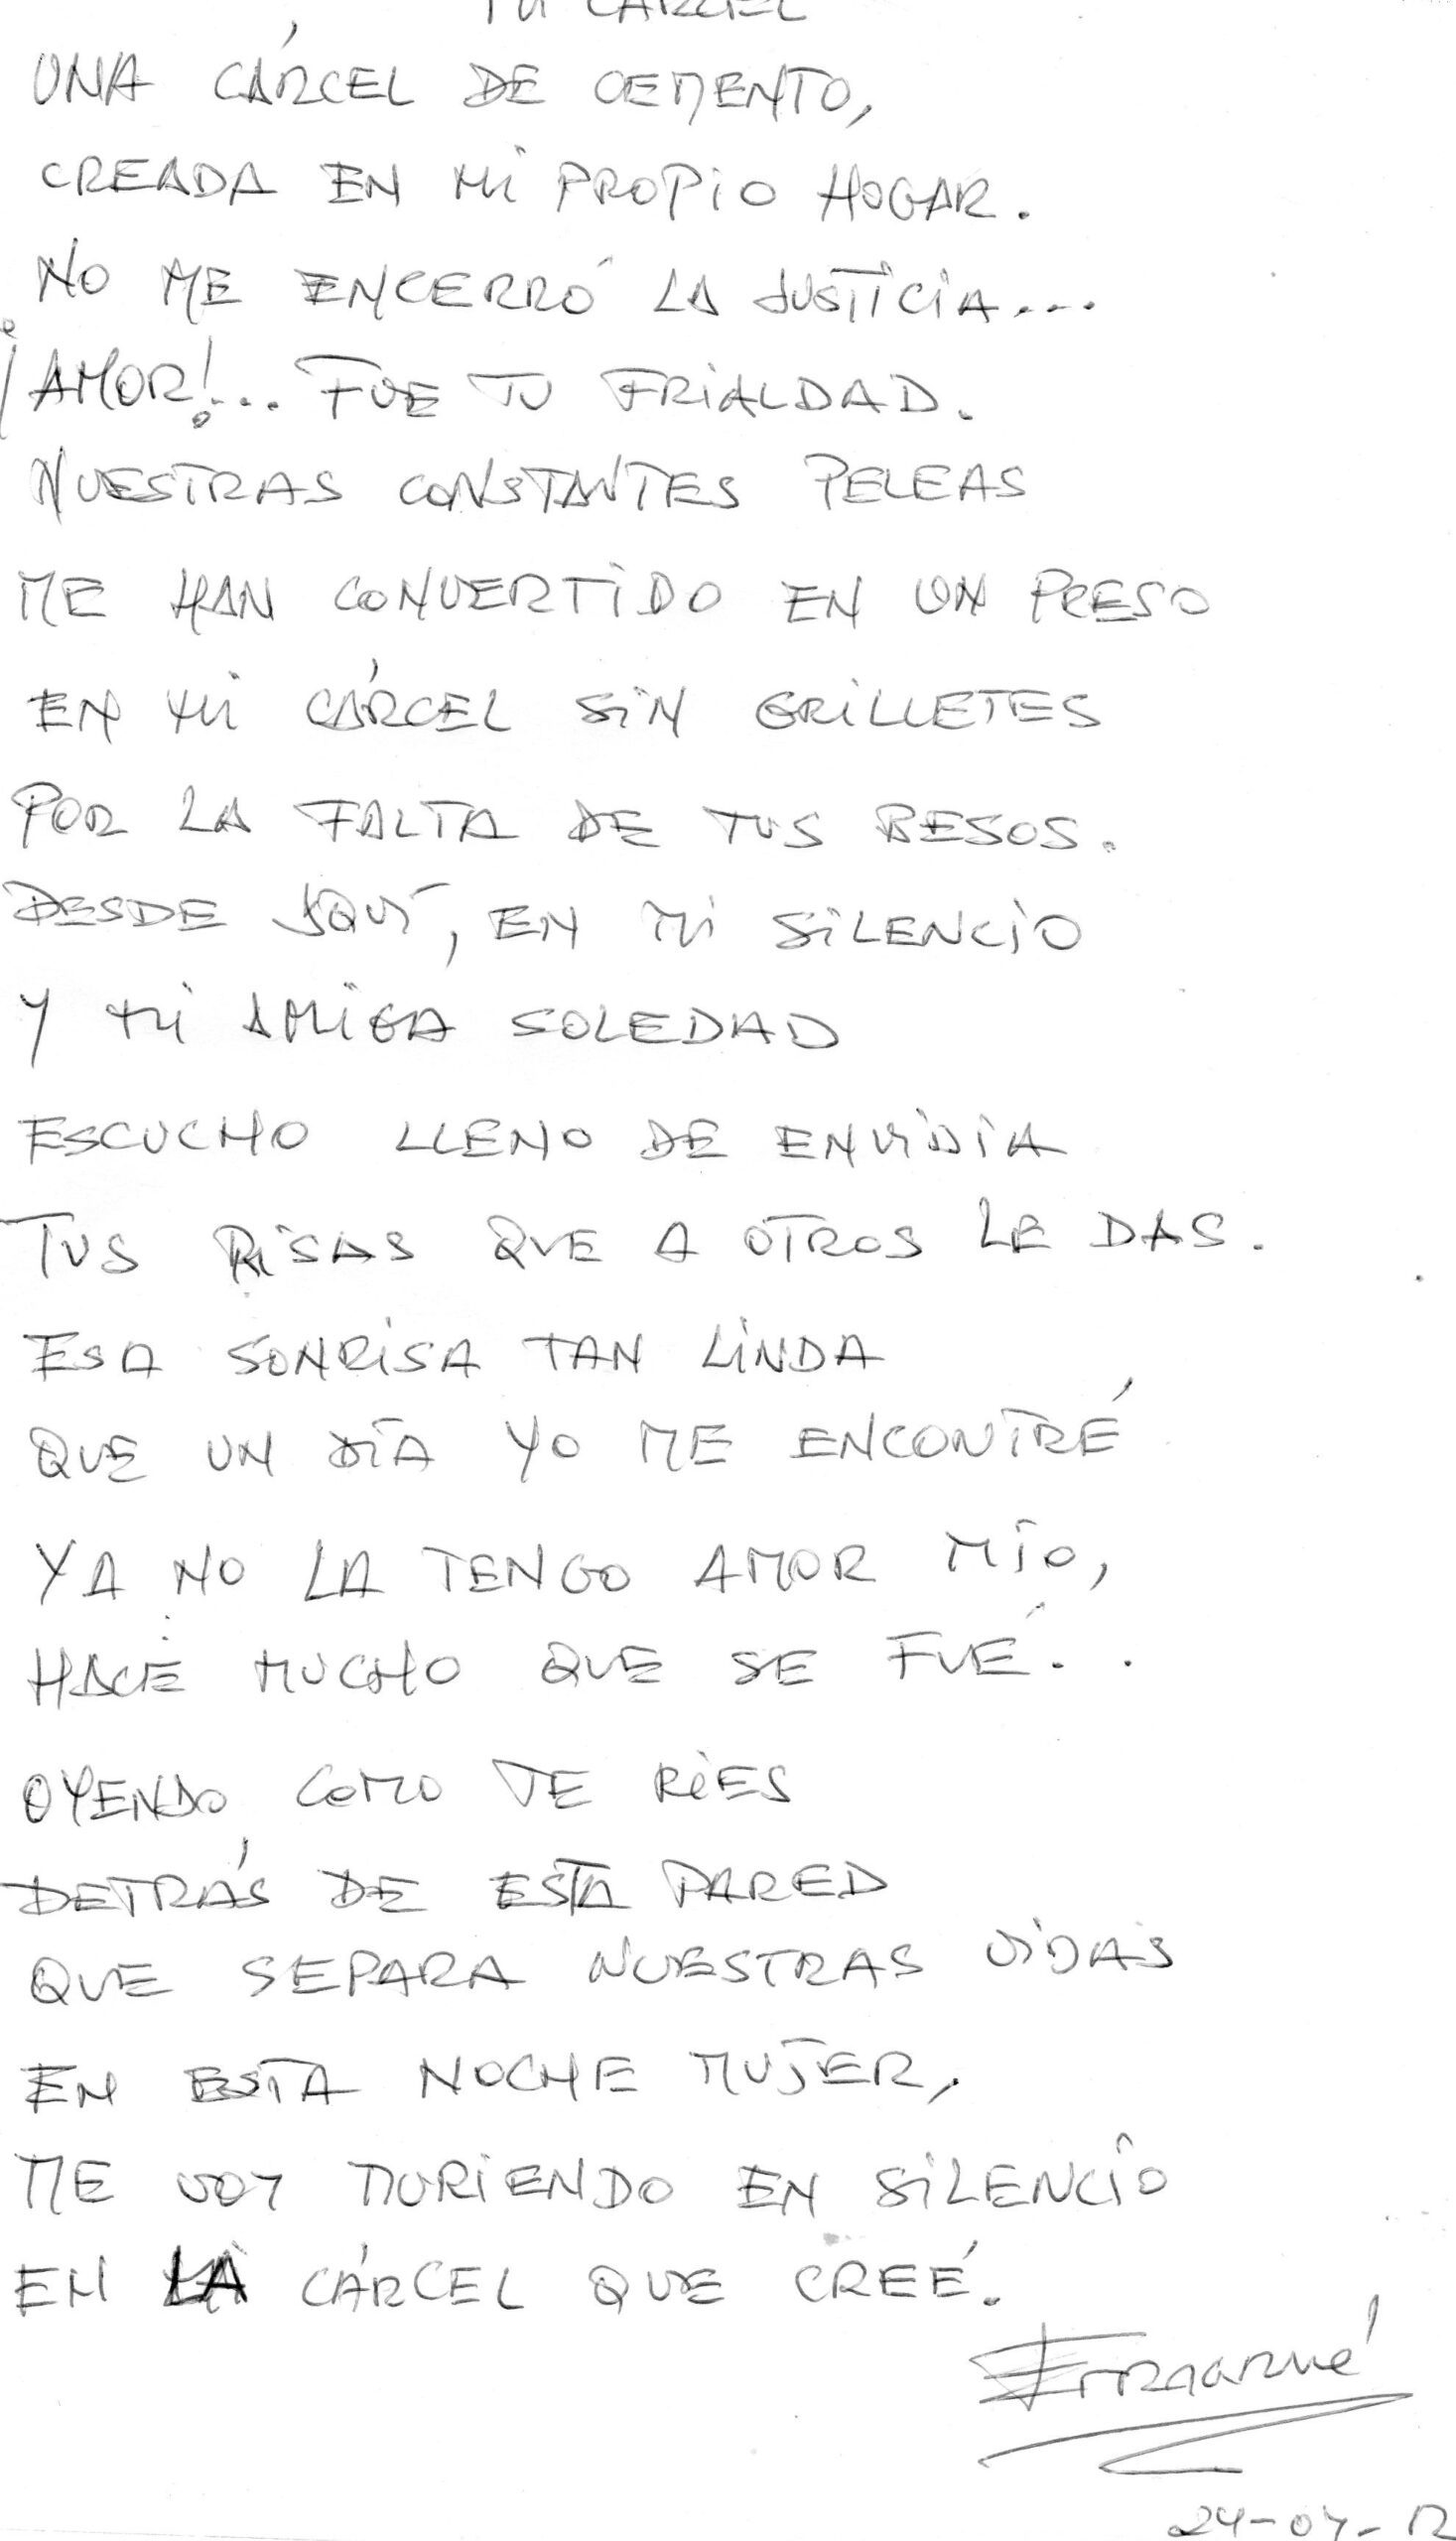 TU CARCEL
UNA CÁRCEL DE CEMENTO,
CREADA EN MI PROPIO HOGAR.
NO ME ENCERRÓ LA JUSTICIA...
¡AMOR!... FUE TU FRIALDAD.
NUESTRAS CONSTANTES PELEAS
ME HAN CONVERTIDO EN UN PRESO
EN MI CÁRCEL SIN GRILLETES
POR LA FALTA DE TUS BESOS.
DESDE AQUÍ, EN MI SILENCIO
Y MI AMIGA SOLEDAD
ESCUCHO LLENO DE ENVIDIA
TUS RISAS QUE A OTROS LE DAS.
ESA SONRISA TAN LINDA
QUE UN DÍA YO ME ENCONTRÉ
YA NO LA TENGO AMOR MÍO,
HACE MUCHO QUE SE FUÉ..
OYENDO COMO TE RIES
DETRÁS DE ESTA PARED
QUE SEPARA NUESTRAS VIDAS
EN ESTA NOCHE MUJER,
ME VOY MURIENDO EN SILENCIO
EN LA CÁRCEL QUE CREÉ.
24-04-12